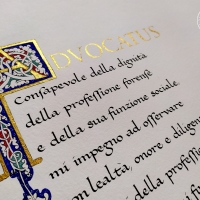 ADVOCATUS
Consapevole della dignità
della professione forense
e della sua funzione sociale
mi impegno ad osservare
con lealtà, onore e diligen
della profession